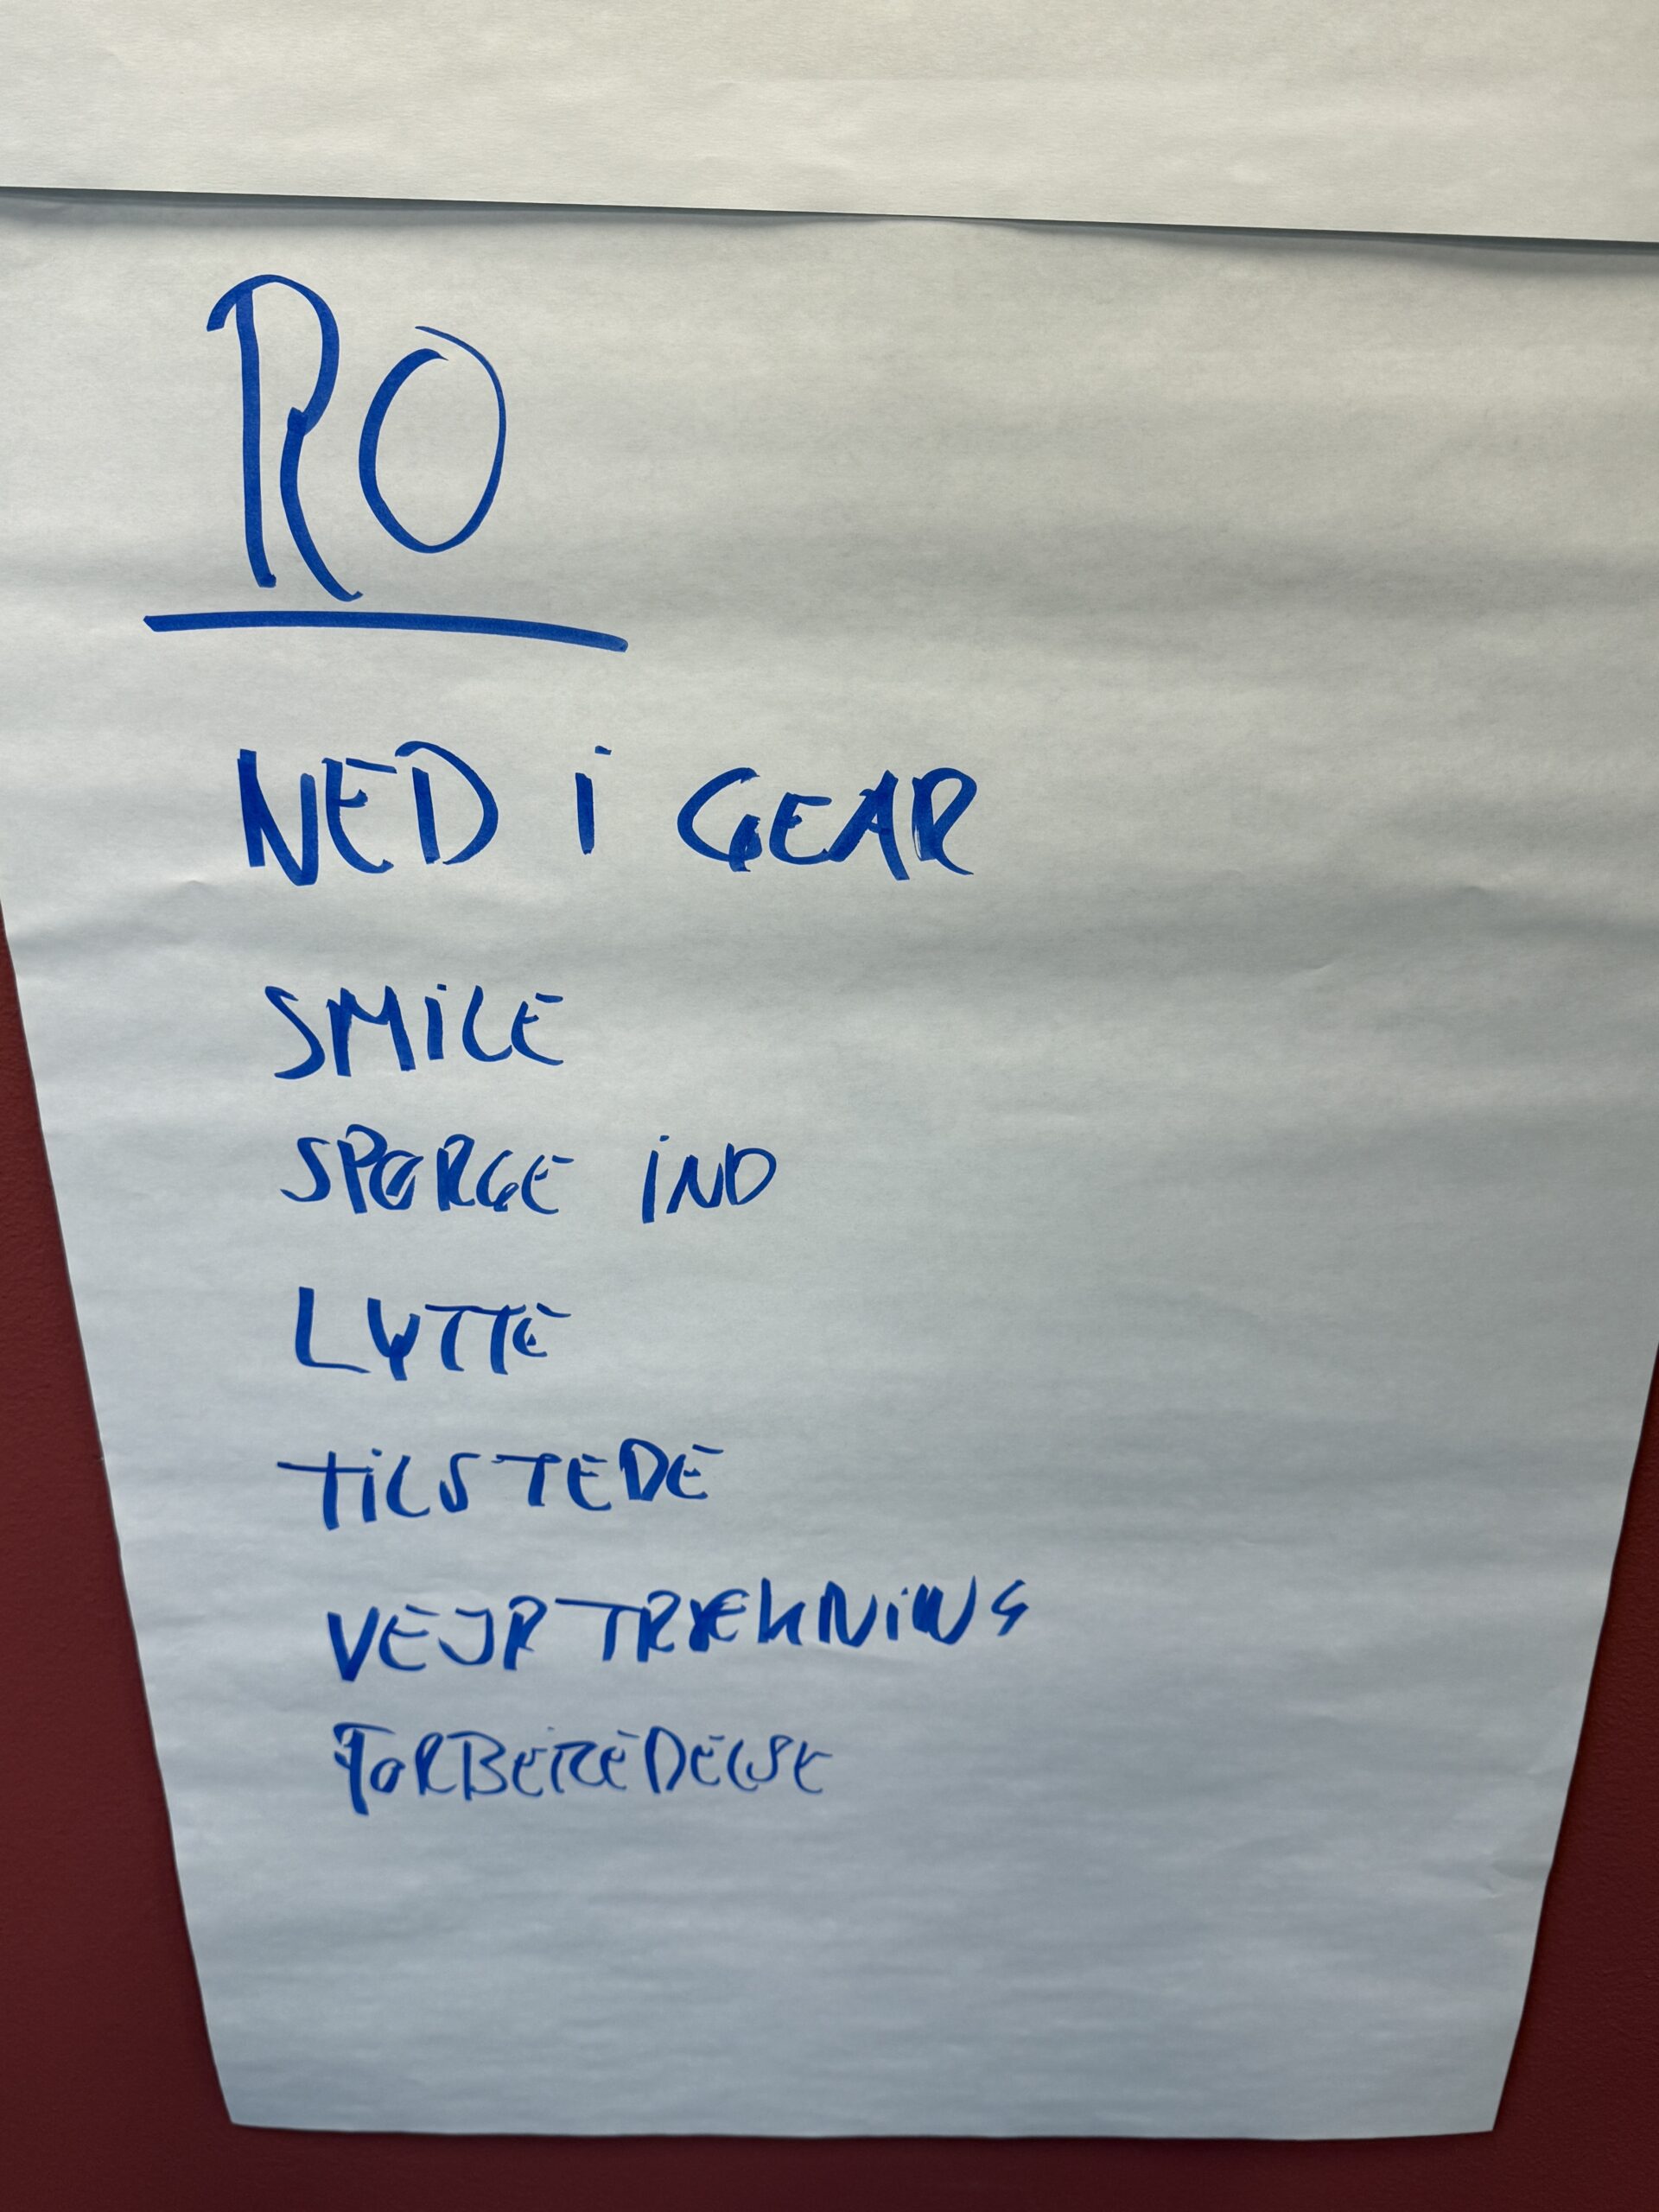 RO
NED i GEAR
SMiLE
SPØRGE iND
LYTTE
TiLSTEDE
VEJRTRÆKNiNG
FORBEREDELSE